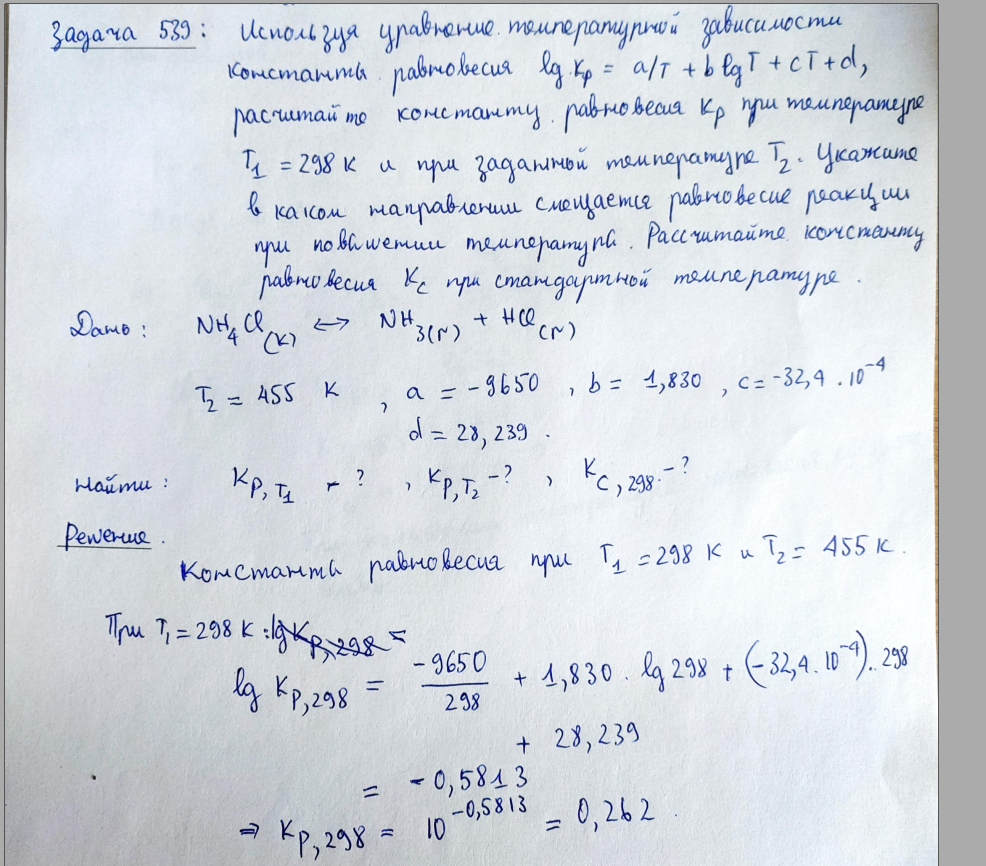 Задача 539: Используя уравнение температурной зависимости
константы равновесия lg Kp = a/T + b lgT + cT + d,
рассчитайте константу равновесия Kp при температуре
T1 = 298 K и при заданной температуре T2. Укажите
в каком направлении смещается равновесие реакции
при повышении температуры. Рассчитайте константу
равновесия Kc при стандартной температуре.
Дано: NH4Cl(к) <-> NH3(г) + HCl(г)
T2 = 455 K, a = -9650, b = 1,830, c = -32,4 · 10^-4
d = 28,239.
Найти: KP,T1 - ?, KP,T2 - ?, KC,298 - ?
Решение.
Константы равновесия при T1 = 298 K и T2 = 455 K.
При T1 = 298 K: lg KP,298 =
lg KP,298 = -9650/298 + 1,830 · lg 298 + (-32,4 · 10^-4) · 298
+ 28,239
= -0,5813
⇒ KP,298 = 10^-0,5813 = 0,262.